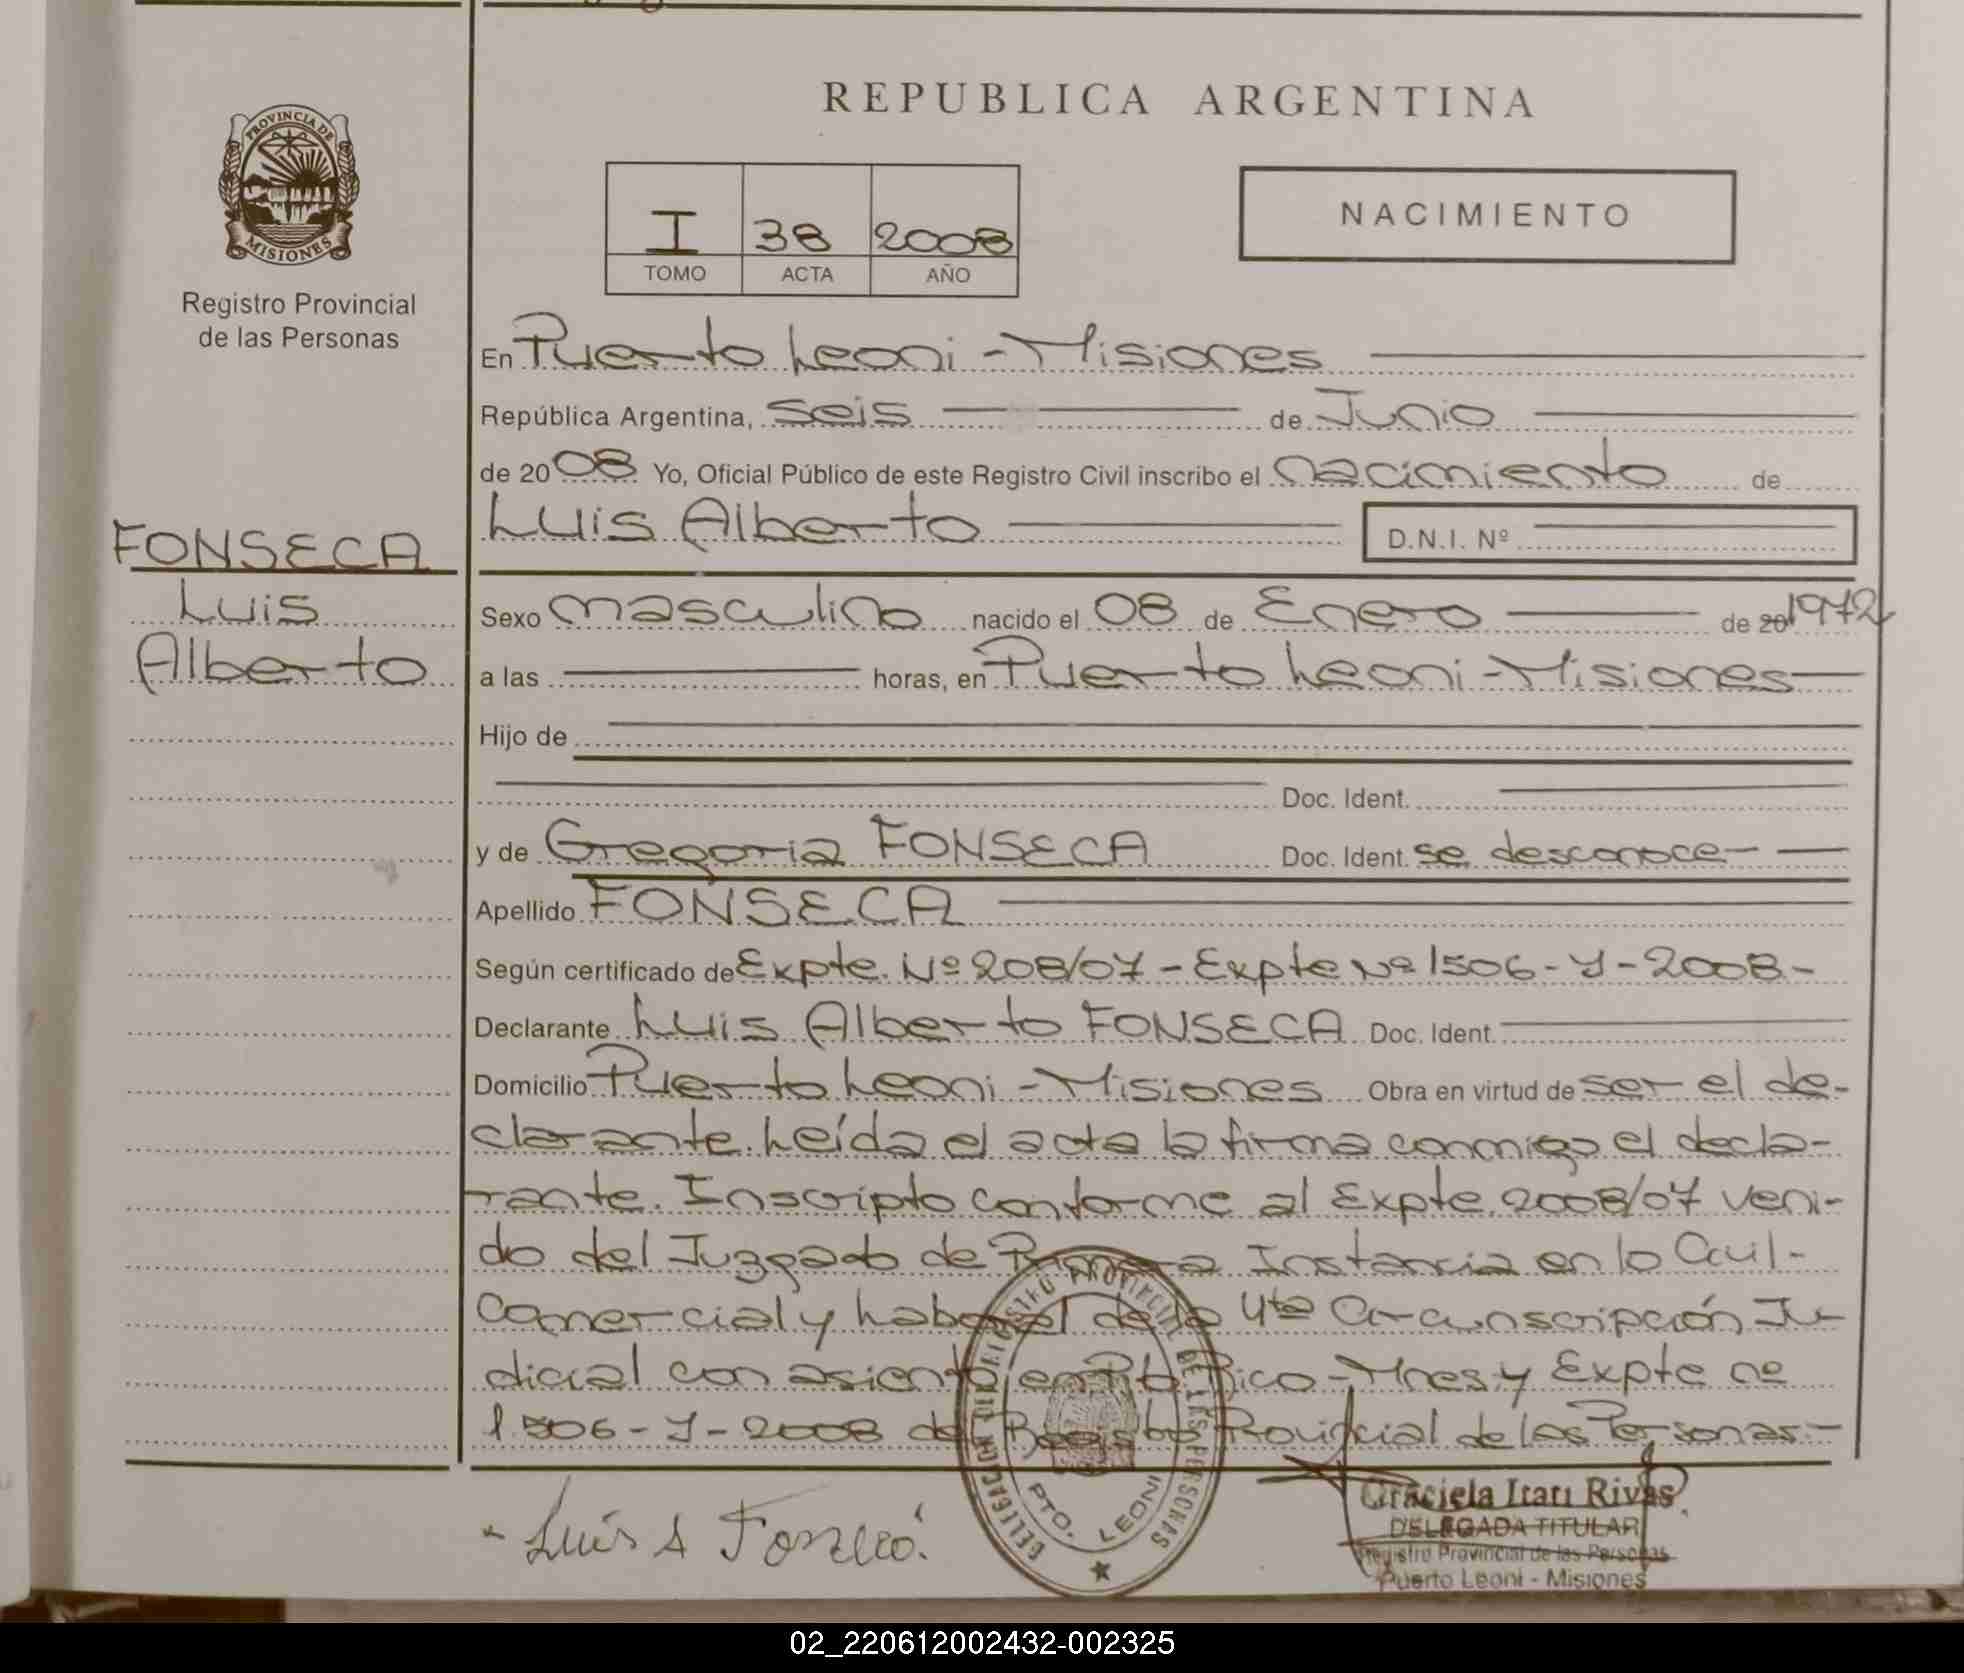 REPUBLICA ARGENTINA
PROVINCIA DE
MISIONES
Registro Provincial
de las Personas
I 38 2008
TOMO ACTA AÑO
NACIMIENTO
En Puerto Leoni - Misiones
República Argentina, seis de Junio
de 2008 Yo, Oficial Público de este Registro Civil inscribo el nacimiento de
Luis Alberto D.N.I. Nº
FONSECA
Luis
Alberto
Sexo masculino nacido el 08 de Enero de 20 1972
a las horas, en Puerto Leoni - Misiones
Hijo de
Doc. Ident.
y de Gregoria FONSECA Doc. Ident. se desconoce
Apellido FONSECA
Según certificado de Expte. Nº 208/07 - Expte Nº 1506 - Y - 2008 -
Declarante Luis Alberto FONSECA Doc. Ident.
Domicilio Puerto Leoni - Misiones Obra en virtud de ser el de-
clarante. Leída el acta la firma conmigo el decla-
rante. Inscripto conforme al Expte. 2008/07 veni-
do del Juzgado de Primera Instancia en lo Civil -
Comercial y Laboral de la 4ta Circunscripción Ju-
dicial con asiento en Pto Rico - Mnes y Expte nº
1.506 - Y - 2008 del Registro Provincial de las Personas -
Luis A Fonseca
DELEGACION DEL REGISTRO PROVINCIAL DE LAS PERSONAS
PTO. LEONI
Graciela Itatí Rivas
DELEGADA TITULAR
Registro Provincial de las Personas
Puerto Leoni - Misiones
02_220612002432-002325